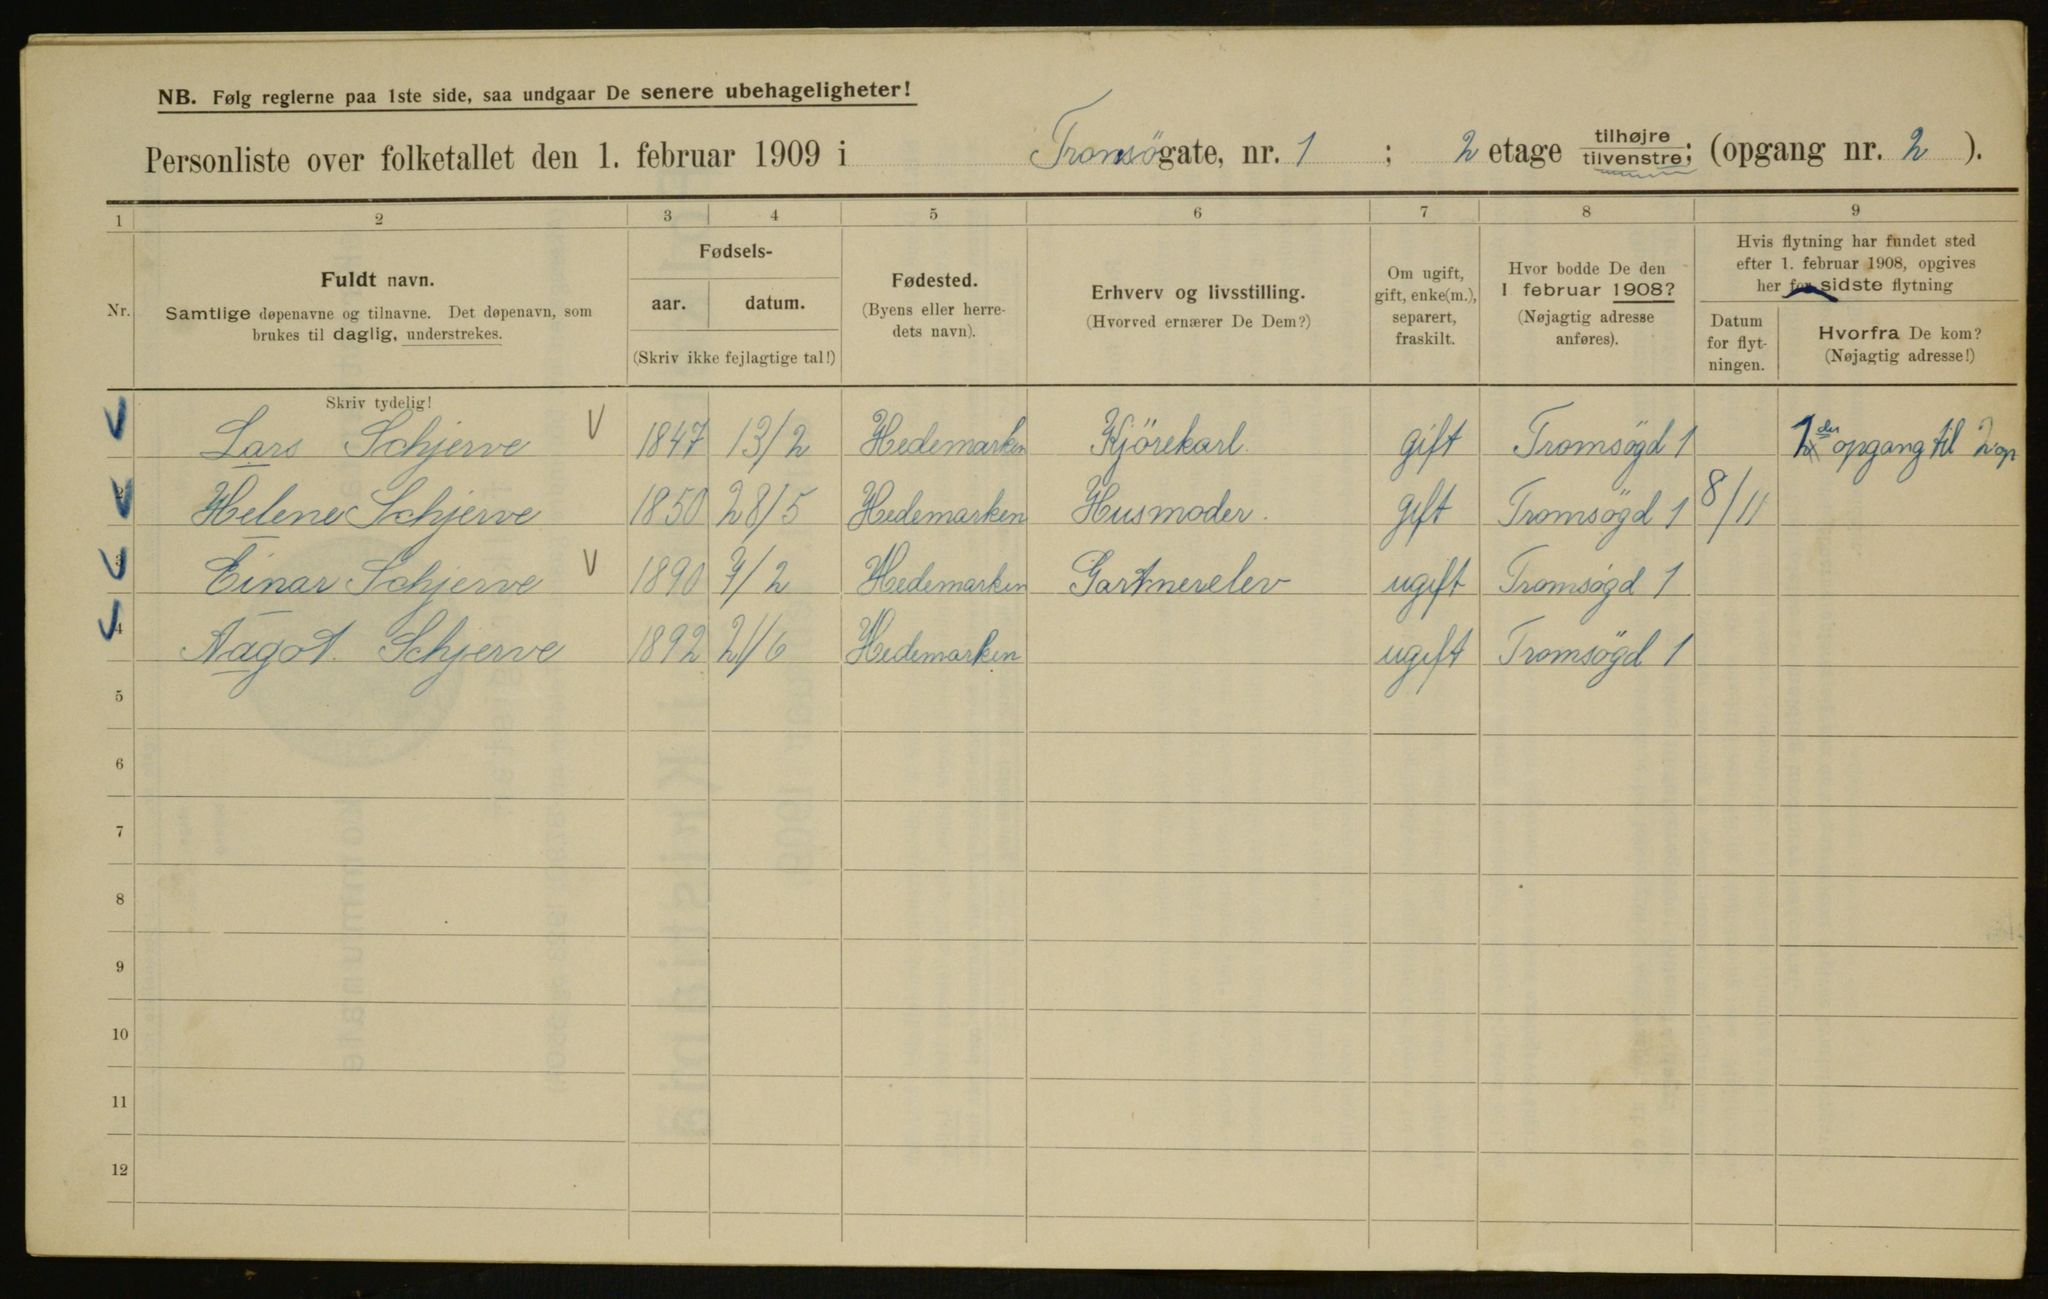 NB. Følg reglerne paa 1ste side, saa undgaar De senere ubehageligheter!
Personliste over folketallet den 1. februar 1909 i Tromsögate, nr. 1 ; 2 etage tilhøjre tilvenstre; (opgang nr. 2 ).
1 2 3 4 5 6 7 8 9
Nr.
Fuldt navn.
Samtlige døpenavne og tilnavne. Det døpenavn, som
brukes til daglig, understrekes.
Fødsels-
aar. datum.
(Skriv ikke fejlagtige tal!)
Fødested.
(Byens eller herre-
dets navn).
Erhverv og livsstilling.
(Hvorved ernærer De Dem?)
Om ugift,
gift, enke(m.),
separert,
fraskilt.
Hvor bodde De den
1 februar 1908?
(Nøjagtig adresse
anføres).
Hvis flytning har fundet sted
efter 1. februar 1908, opgives
her for sidste flytning
Datum
for flyt-
ningen.
Hvorfra De kom?
(Nøjagtig adresse!)
Skriv tydelig!
Lars Schjerve V 1847 13/2 Hedemarken Kjörekarl. gift Tromsögd 1 1 der opgang til 2 op
2 Helene Schjerve 1850 28/5 Hedemarken Husmoder. gift Tromsögd 1 8/11
3 Einar Schjerve V 1890 7/2 Hedemarken Gartnerelev ugift Tromsögd 1
4 Aagot. Schjerve 1892 21/6 Hedemarken ugift Tromsögd 1
5
6
7
8
9
10
11
12